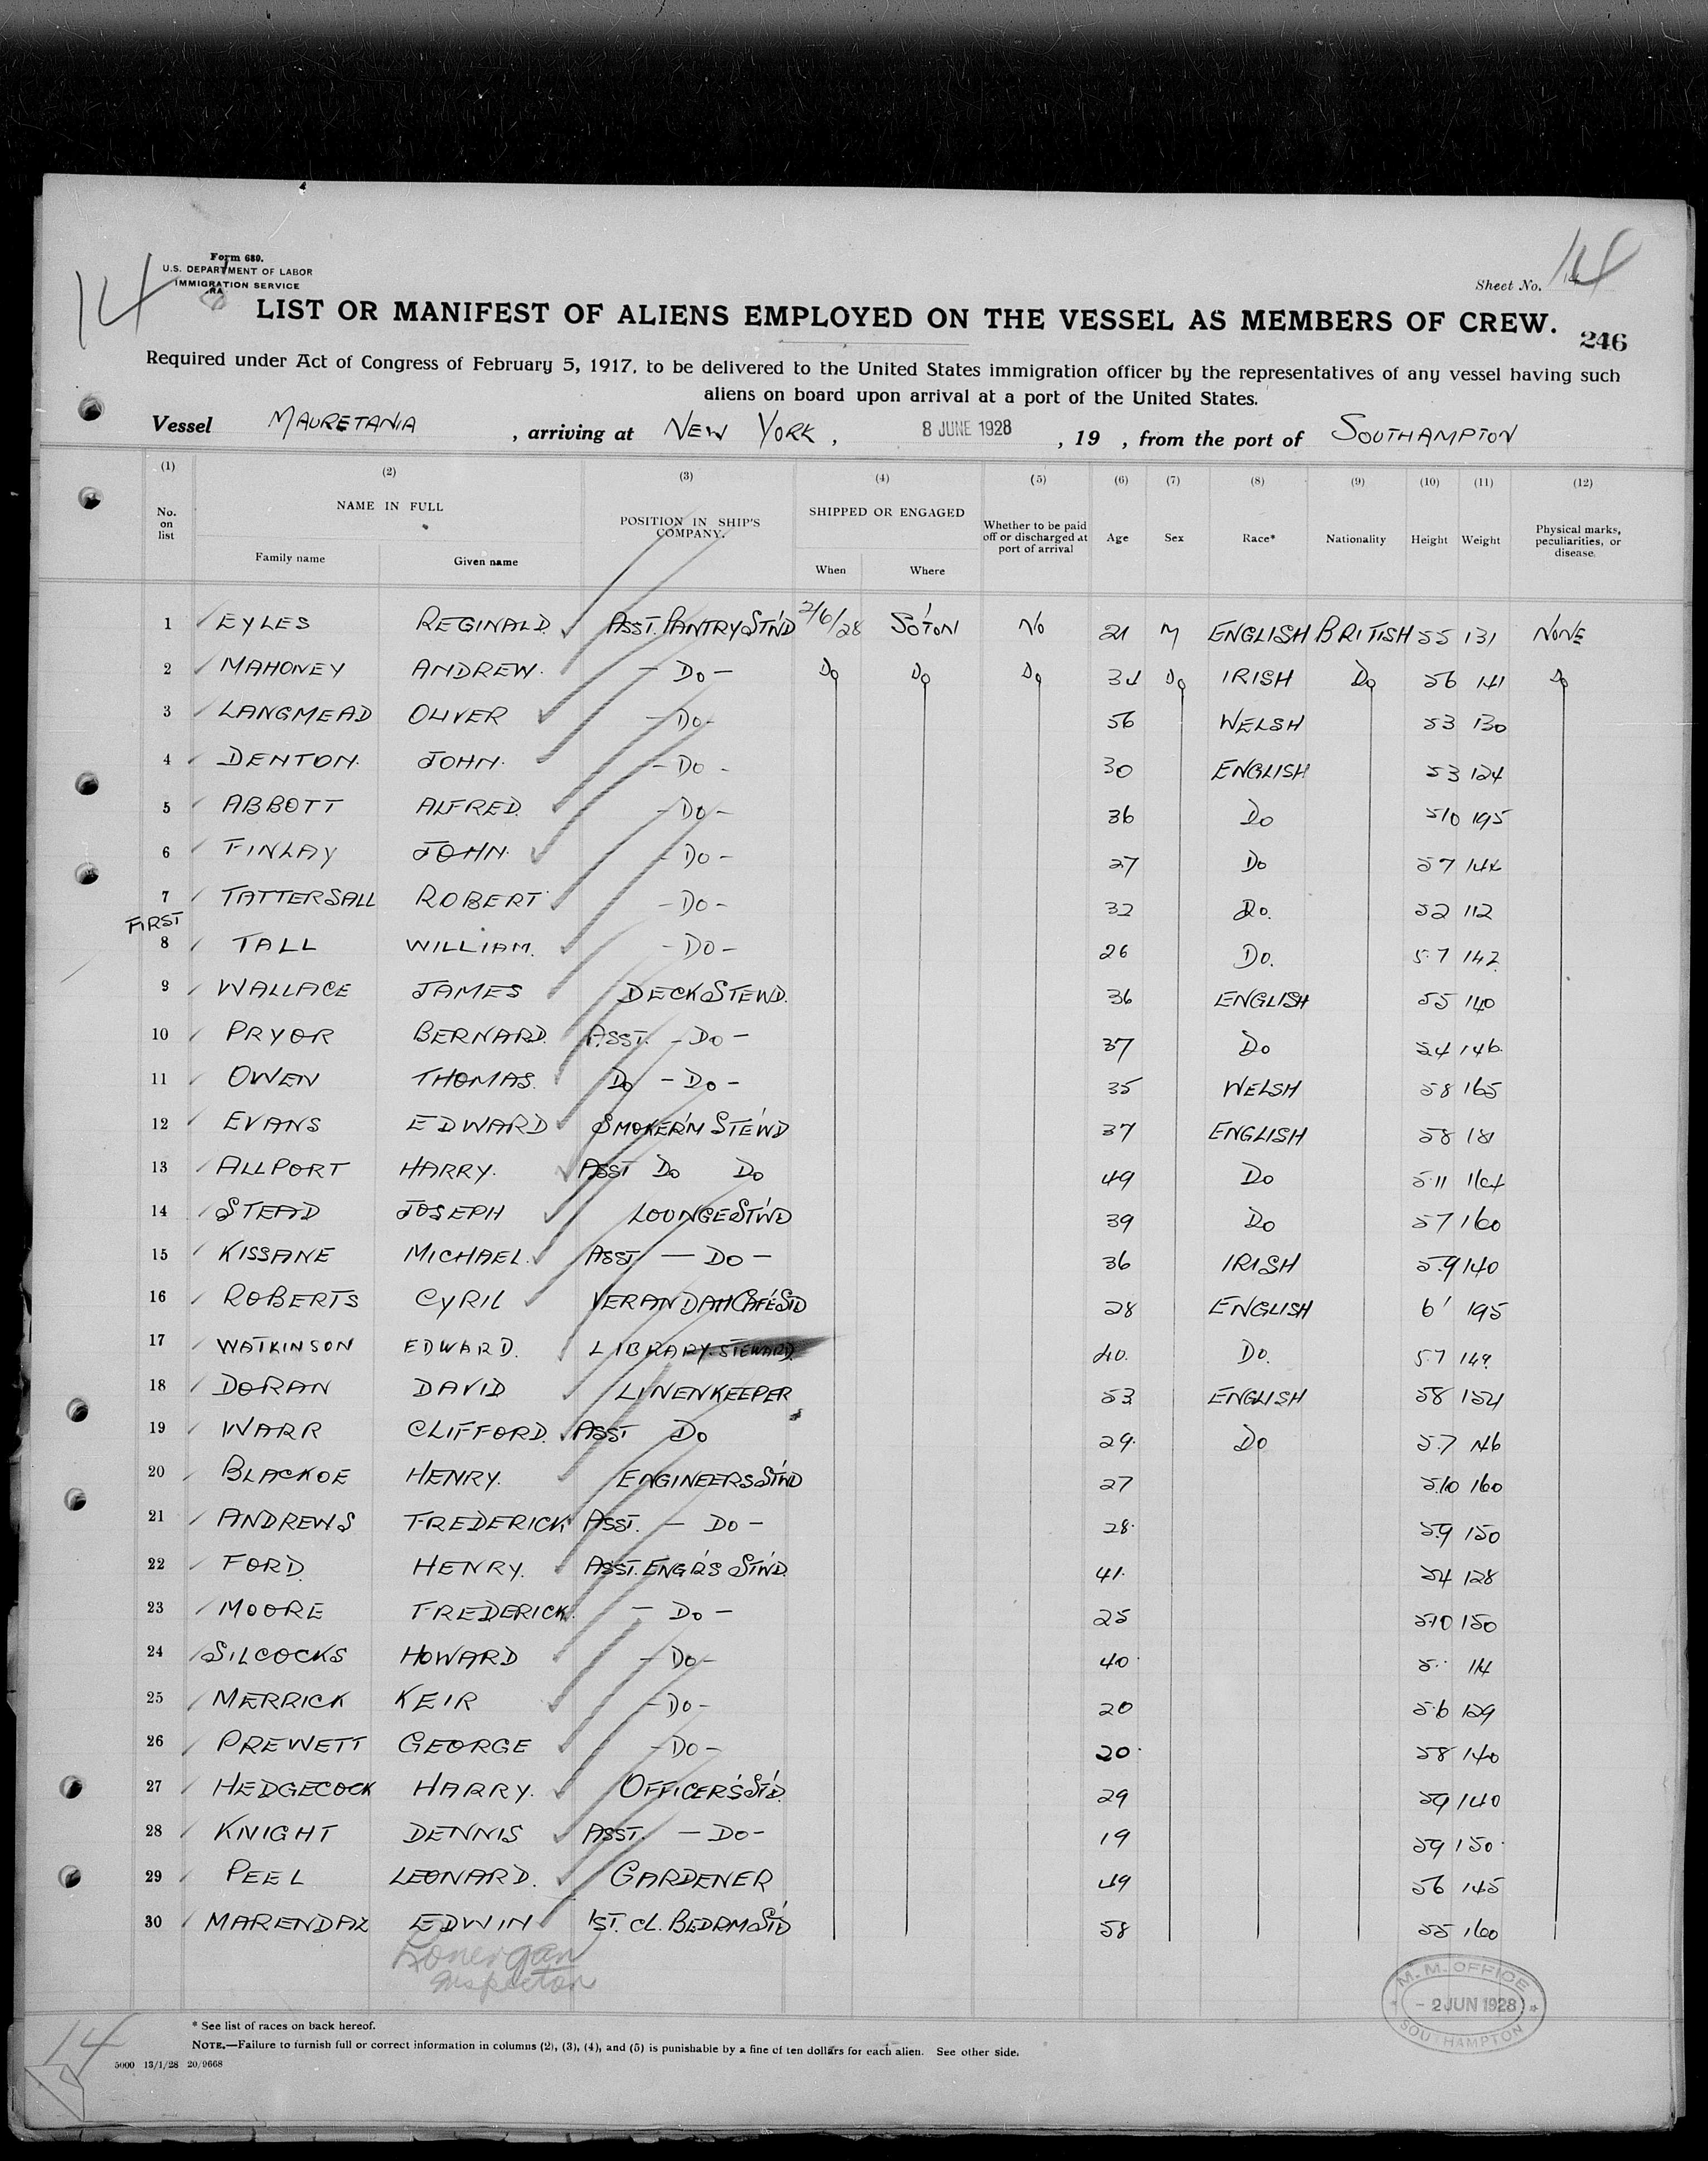 14
Form 689.
U.S. DEPARTMENT OF LABOR
IMMIGRATION SERVICE
Sheet No. 14
LIST OR MANIFEST OF ALIENS EMPLOYED ON THE VESSEL AS MEMBERS OF CREW.
246
Required under Act of Congress of February 5, 1917, to be delivered to the United States immigration officer by the representatives of any vessel having such
aliens on board upon arrival at a port of the United States.
Vessel MAURETANIA , arriving at NEW YORK , 8 JUNE 1928 , 19 , from the port of SOUTHAMPTON
(1) (2) (3) (4) (5) (6) (7) (8) (9) (10) (11) (12)
No. on list NAME IN FULL POSITION IN SHIP'S COMPANY. SHIPPED OR ENGAGED Whether to be paid off or discharged at port of arrival Age Sex Race* Nationality Height Weight Physical marks, peculiarities, or disease.
Family name Given name When Where
1 EYLES REGINALD. ASST. PANTRY ST'WD 2/6/28 SO'TON NO 21 M ENGLISH BRITISH 55 131 NONE
2 MAHONEY ANDREW. - DO - DO DO DO 34 DO IRISH DO 56 141 DO
3 LANGMEAD OLIVER - DO - 56 WELSH 53 130
4 DENTON. JOHN. - DO - 30 ENGLISH 53 124
5 ABBOTT ALFRED. - DO - 36 DO 510 195
6 FINLAY JOHN. - DO - 27 DO 57 144
7 TATTERSALL ROBERT - DO - 32 DO. 52 112
FIRST
8 TALL WILLIAM. - DO - 26 DO. 5.7 142
9 WALLACE JAMES DECK STEWD. 36 ENGLISH 55 140
10 PRYOR BERNARD. ASST. - DO - 37 DO 54 146.
11 OWEN THOMAS. DO - DO - 35 WELSH 58 165
12 EVANS EDWARD SMOKER'M STE'WD 37 ENGLISH 58 181
13 ALLPORT HARRY. ASST DO DO 49 DO 5.11 164
14 STEAD JOSEPH LOUNGE ST'WD 39 DO 57 160
15 KISSANE MICHAEL. ASST — DO - 36 IRISH 5.9 140
16 ROBERTS CYRIL VERANDAH CAFÉ ST'D 28 ENGLISH 6' 195
17 WATKINSON EDWARD. LIBRARY. STEWARD. 40. DO. 5.7 149.
18 DORAN DAVID LINENKEEPER 53 ENGLISH 58 154
19 WARR CLIFFORD. ASST DO 29. DO 5.7 146
20 BLACKOE HENRY. ENGINEERS ST'WD 27 5.10 160
21 ANDREWS FREDERICK ASST. — DO - 28. 5.9 150
22 FORD. HENRY. ASST. ENG'RS ST'WD. 41. 54 128
23 MOORE FREDERICK. - DO - 25 5.10 150
24 SILCOCKS HOWARD - DO - 40. 5.. 114
25 MERRICK KEIR - DO - 20 5.6 129
26 PREWETT GEORGE - DO - 20. 58 140
27 HEDGECOCK HARRY. OFFICER'S ST'D. 29 59 140
28 KNIGHT DENNIS ASST. - DO - 19 59 150.
29 PEEL LEONARD. GARDENER 49 56 145
30 MARENDAZ EDWIN 1ST. CL. BEDRM ST'D 58 55 160
Lonergan
Inspector
M. M. OFFICE
- 2 JUN 1928
SOUTHAMPTON
* See list of races on back hereof.
NOTE.—Failure to furnish full or correct information in columns (2), (3), (4), and (5) is punishable by a fine of ten dollars for each alien. See other side.
14
5000 13/1/28 20/9668